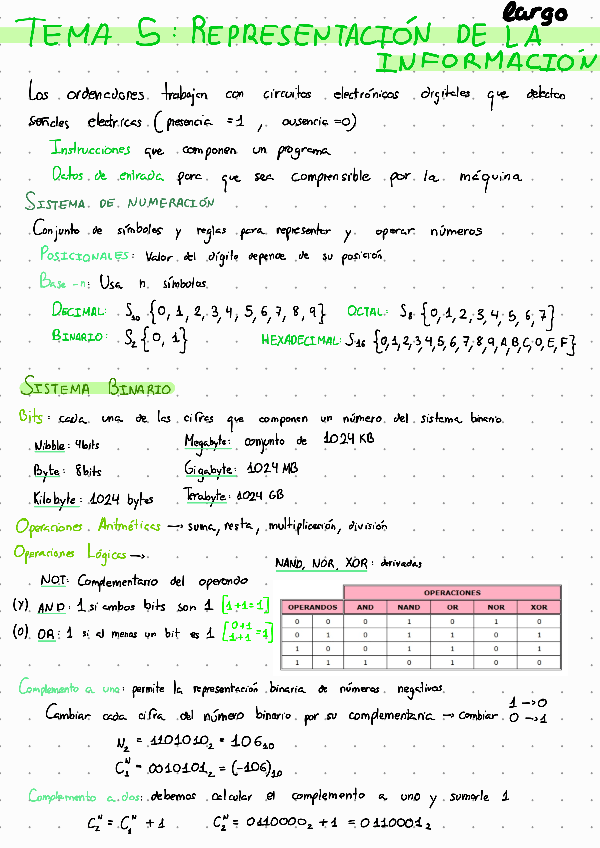 largo
TEMA 5: REPRESENTACIÓN DE LA
INFORMACIÓN
Los ordenadores trabajan con circuitos electrónicos digitales que detectan
señales eléctricas (presencia =1, ausencia =0)
Instrucciones que componen un programa
Datos de entrada para que sea comprensible por la máquina
SISTEMA DE NUMERACIÓN
Conjunto de símbolos y reglas para representar y operar números
POSICIONALES: Valor del dígito depende de su posición.
Base-n: Usa n símbolos.
DECIMAL: S₁₀ {0, 1, 2, 3, 4, 5, 6, 7, 8, 9} OCTAL: S₈ {0, 1, 2, 3, 4, 5, 6, 7}
BINARIO: S₂ {0, 1} HEXADECIMAL: S₁₆ {0,1,2,3,4,5,6,7,8,9,A,B,C,D,E,F}
SISTEMA BINARIO
Bits: cada una de las cifras que componen un número del sistema binario.
Nibble: 4bits Megabyte: conjunto de 1024 KB
Byte: 8bits Gigabyte: 1024 MB
Kilobyte: 1024 bytes Terabyte: 1024 GB
Operaciones Aritméticas → suma, resta, multiplicación, división
Operaciones Lógicas →
NAND, NOR, XOR: derivadas
NOT: Complementario del operando
(Y) AND: 1 si ambos bits son 1 [1+1=1]
(O) OR: 1 si al menos un bit es 1 [0+1 1+1 =1]
OPERACIONES
OPERANDOS AND NAND OR NOR XOR
0 0 0 1 0 1 0
0 1 0 1 1 0 1
1 0 0 1 1 0 1
1 1 1 0 1 0 0
Complemento a uno: permite la representación binaria de números negativos.
Cambiar cada cifra del número binario por su complementaria → cambiar 1→0 0→1
N₂ = 1101010₂ = 106₁₀
C₁ᴺ = 0010101₂ = (-106)₁₀
Complemento a dos: debemos calcular el complemento a uno y sumarle 1
C₂ᴺ = C₁ᴺ + 1 C₂ᴺ = 0110000₂ + 1 = 0110001₂